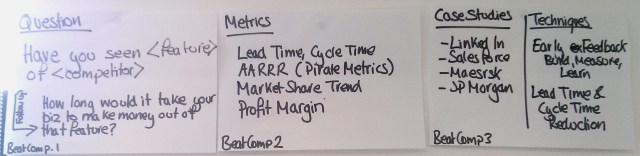 Question
Have you seen <feature>
of <competitor>
Follow up
How long would it take your
biz to make money out of
that feature?
BeatComp.1
Metrics
Lead Time, Cycle Time
AARRR (Pirate Metrics)
Market Share Trend
Profit Margin
BeatComp2
Case Studies
- Linked In
- Sales force
- Maesrsk
- JP Morgan
BeatComp3
Techniques
Early Feedback
Build, Measure,
Learn
Lead Time &
Cycle Time
Reduction